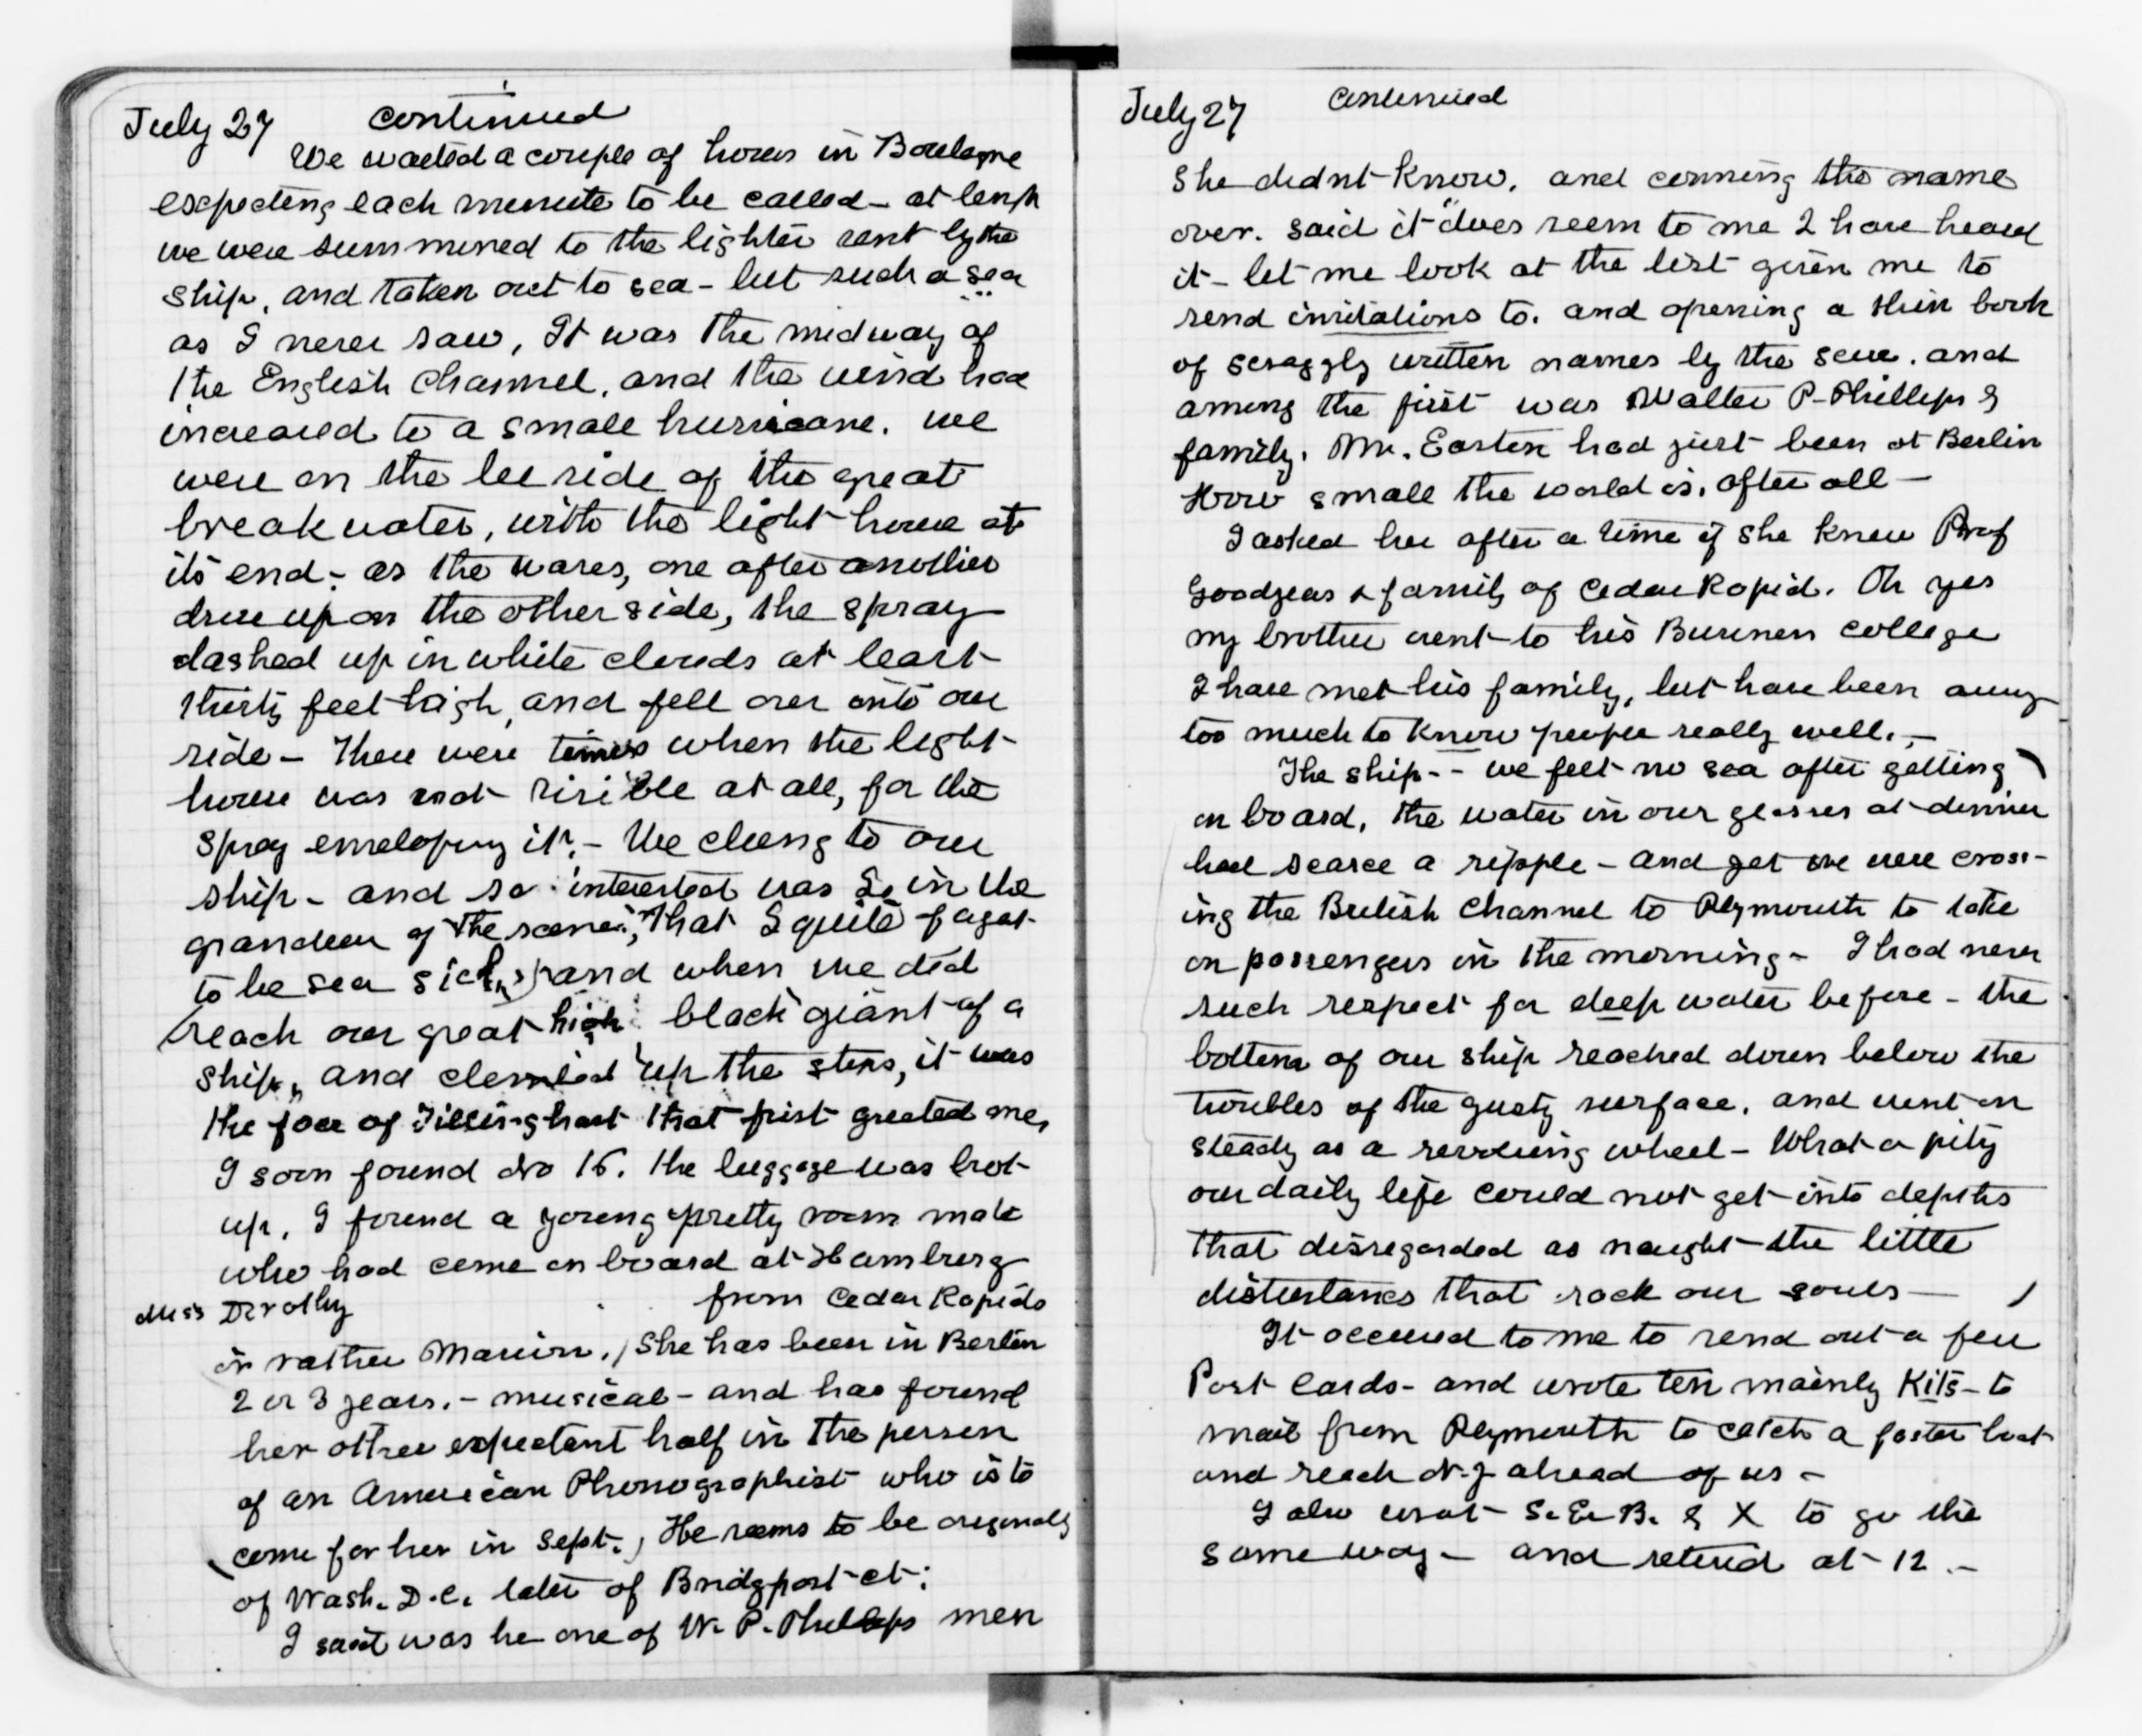 July 27 continued
We waited a couple of hours in Boulogne
expecting each minute to be called - at length
we were summoned to the lighter sent by the
ship, and taken out to sea - but such a sea
as I never saw, It was the midway of
the English Channel, and the wind had
increased to a small hurricane. we
were on the lee side of the great
breakwater, with the light house at
its end - as the waves, one after another
drew up on the other side, the spray
dashed up in white clouds at least
thirty feet high, and fell over onto our
side - There were times when the light
house was not visible at all, for the
spray enveloping it. - We clung to our
ship - and so interested was I in the
grandeur of the scene, that I quite forgot
to be sea sick, and when we did
reach our great high black giant of a
ship, and climbed up the steps, it was
the face of Tillinghast that first greeted me,
I soon found No 16. the luggage was brot
up, I found a young pretty room mate
who had come on board at Hamburg
Miss Dorothy from Cedar Rapids
or rather Marion. She has been in Berlin
2 or 3 years. - musical - and has found
her other expectant half in the person
of an American Phonographist who is to
come for her in Sept. He seems to be originally
of Wash. D.C. later of Bridgport ct.
I said was he one of W. P. Phillips men
July 27 continued
She didnt know, and conning the name
over. said it "does seem to me I have heard
it - let me look at the list given me to
send invitations to. and opening a thin book
of scraggly written names by the
and
among the first was Walter P. Phillips &
family. Mr. Easton had just been at Berlin
How small the world is, after all -
I asked her after a time if she knew Prof
Goodyear & family of Cedar Rapid. Oh yes
my brother went to his Business College
I have met his family, but have been away
too much to know people really well. -
The ship - - we felt no sea after getting
on board, the water in our glasses at dinner
had scarce a ripple - and yet we were cross-
ing the British Channel to Plymouth to take
on passengers in the morning - I had never
such respect for deep water before - the
bottom of our ship reached down below the
troubles of the gusty surface, and went on
steady as a revolving wheel - What a pity
our daily life could not get into depths
that disregarded as naught the little
disturbances that rock our souls -
It occurred to me to send out a few
Post Cards - and wrote ten mainly Kits - to
mail from Plymouth to catch a faster boat
and reach N.Y ahead of us -
I also wrot S. E. B. & X to go the
same way - and retired at 12 . -